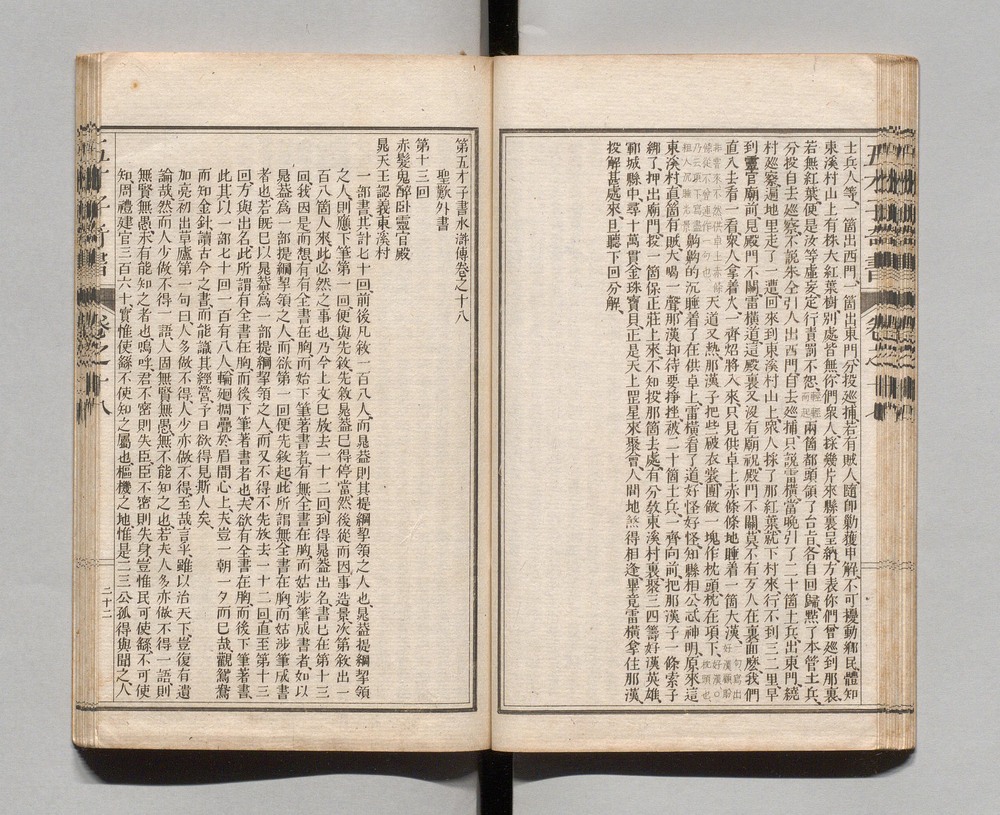 士兵人等、一箇出西門、一箇出東門、分投巡捕、若有賊人、隨即勦獲申解、不可擾動鄉民、體知
東溪村山上有株大紅葉樹、別處皆無、你們衆人採幾片來縣裏呈納、方表你們曾巡到那裏、
若無紅葉、便是汝等虛妄、定行責罰不恕、兩箇都頭領了台旨、各自回歸、點了本管土兵、
分投自去巡察、不說朱仝引人出西門、自去巡捕、只說雷橫當晚引了二十箇土兵、出東門、繞
村巡察、遍地里走了一遭、回來到東溪村山上、衆人採了那紅葉、就下村來、行不到三二里、早
到靈官廟前、見殿門不關、雷橫道、這殿裏又沒有廟祝、殿門不關、莫不有歹人在裏面麽、我們
直入去看一看、衆人拿着火、一齊炤將入來、只見供卓上赤條條地睡着一箇大漢、
天道又熱、那漢子把些破衣裳團做一塊作枕頭、枕在項下、
齁齁的沉睡着了在供卓上、雷橫看了道、好怪好怪、知縣相公忒神明、原來這
東溪村真箇有賊、大喝一聲、那漢却待要掙挫、被二十箇土兵一齊向前、把那漢子一條索子
綁了、押出廟門、投一箇保正莊上來、不知投那箇去處、有分教東溪村裏、聚三四籌好漢英雄、
鄆城縣中、尋十萬貫金珠寶貝、正是天上罡星來聚會、人間地煞得相逢、畢竟雷橫拿住那漢、
投解甚處來、且聽下回分解、
第五才子書水滸傳卷之十八
聖歎外書
第十三回
赤髮鬼醉臥靈官殿
晁天王認義東溪村
一部書共計七十回、前後凡敘一百八人、而晁蓋則其提綱挈領之人也、晁蓋提綱挈領
之人、則應下筆第一回便與先敘、先敘晁蓋已得停當、然後從而因事造景、次第敘出一
百八箇人來、此必然之事也、乃今上文已放去一十二回、到得晁蓋出名、書已在第十三
回、我因是而想、有有全書在胸而始下筆著書者、有無全書在胸而姑涉筆成書者、如以
晁蓋爲一部提綱挈領之人、而欲第一回便先敘起、此所謂無全書在胸、而姑涉筆成書
者也、若既已以晁蓋爲一部提綱挈領之人、而又不得不先放去一十二回、直至第十三
回方與出名、此所謂有全書在胸、而後下筆著書者也、夫欲有全書在胸、而後下筆著書、
此其以一部七十回一百有八人、輪廻摺疊於眉間心上、夫豈一朝一夕而已哉、觀鴛鴦
而知金針、讀古今之書、而能識其經營、予日欲得見斯人矣、
加亮初出草廬第一句曰、人多做不得、人少亦做不得、至哉言乎、雖以治天下、豈復有遺
論哉、然而人少做不得一語、人固無賢無愚、無不能知之也、若夫人多亦做不得一語、則
無賢無愚、未有能知之者也、嗚呼、君不密則失臣、臣不密則失身、豈惟民可使繇、不可使
知、周禮建官三百六十、實惟使繇、不使知之屬也、樞機之地、惟是二三公孤得與聞之、人
二十二